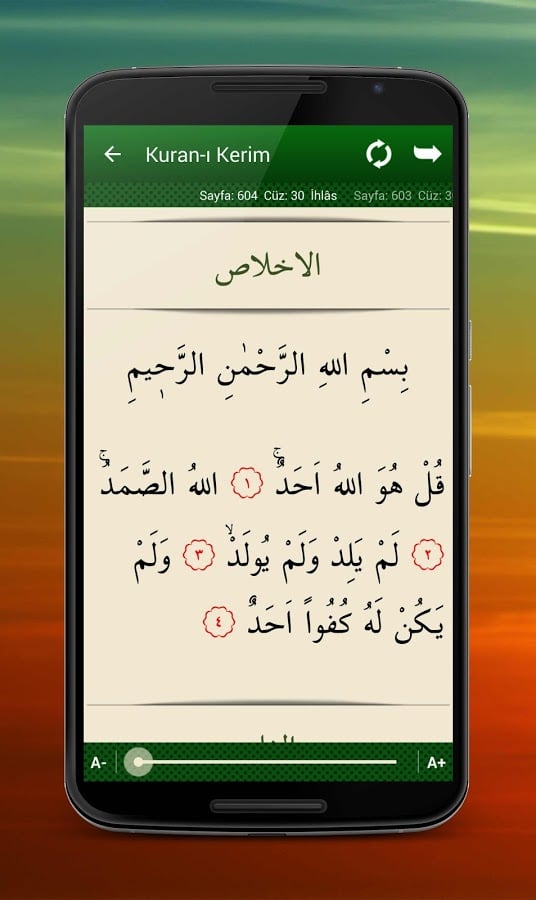 Kuran-ı Kerim
Sayfa: 604 Cüz: 30 İhlâs Sayfa: 603 Cüz: 3
الاخلاص
بِسْمِ اللهِ الرَّحْمٰنِ الرَّحٖيمِ
قُلْ هُوَ اللهُ اَحَدٌۚ ١ اللهُ الصَّمَدُۚ
٢ لَمْ يَلِدْ وَلَمْ يُولَدْۙ ٣ وَلَمْ
يَكُنْ لَهُ كُفُواً اَحَدٌ ٤
A- A+